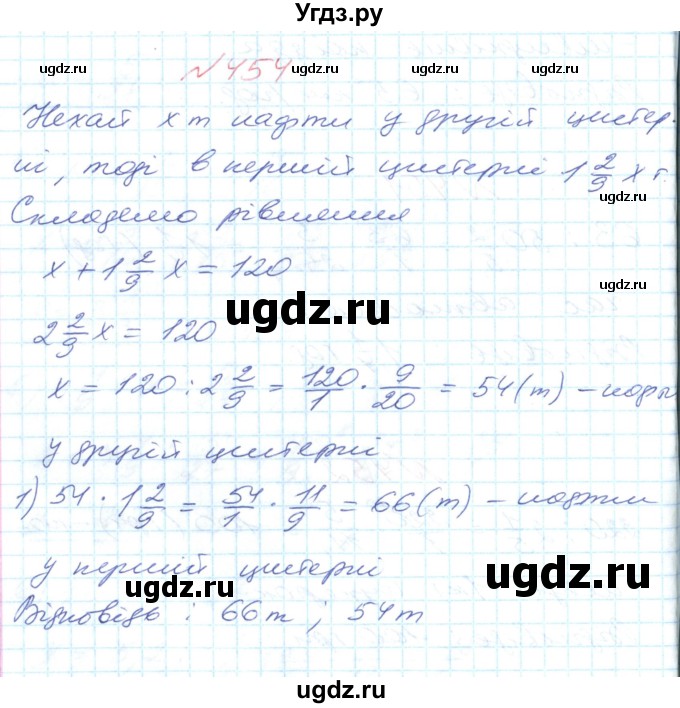 Угдз.ру
№ 454
ugdz.ru ugdz.ru ugdz.ru
Нехай x т нафти у другій цистер-
ні, тоді в першій цистерні 1 2/9 x т.
ugdz.ru ugdz.ru
Складемо рівняння
x + 1 2/9 x = 120
ugdz.ru
2 2/9 x = 120
x = 120 : 2 2/9 = 120/1 · 9/20 = 54 (т) – нафти
у другій цистерні
ugdz.ru ugdz.ru
1) 54 · 1 2/9 = 54/1 · 11/9 = 66 (т) – нафти
у першій цистерні
ugdz.ru ugdz.ru
Відповідь : 66 т ; 54 т
ugdz.ru